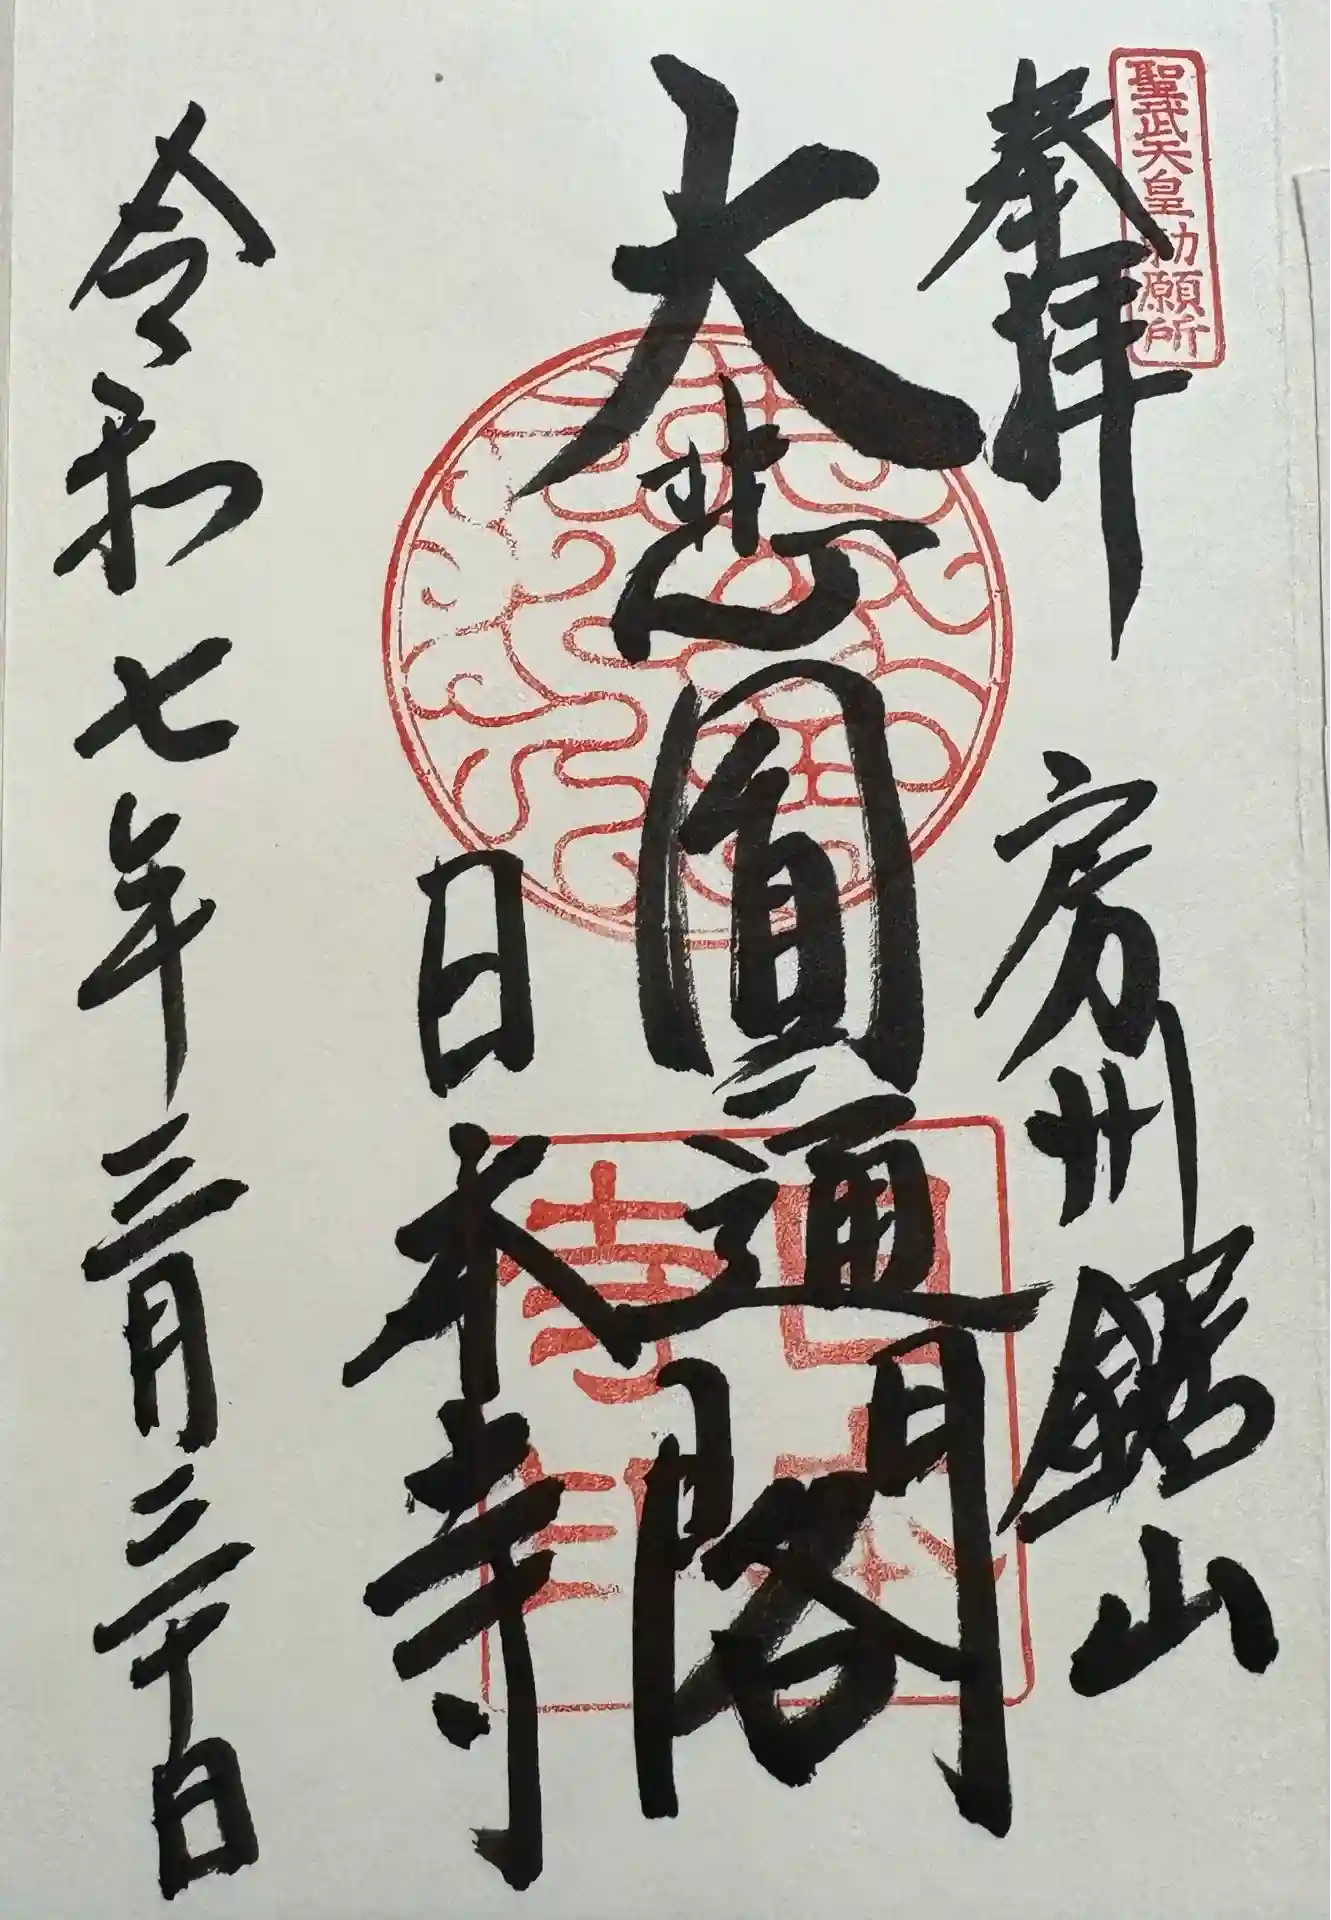 聖武天皇勅願所
奉拝 房州鋸山
大悲圓通閣
日本寺
令和七年三月二十日